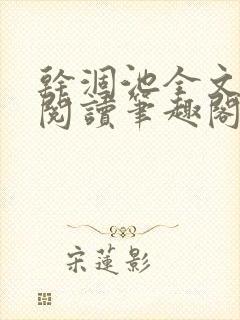 幹涸池全文
閱讀筆趣閣
宋蓮影